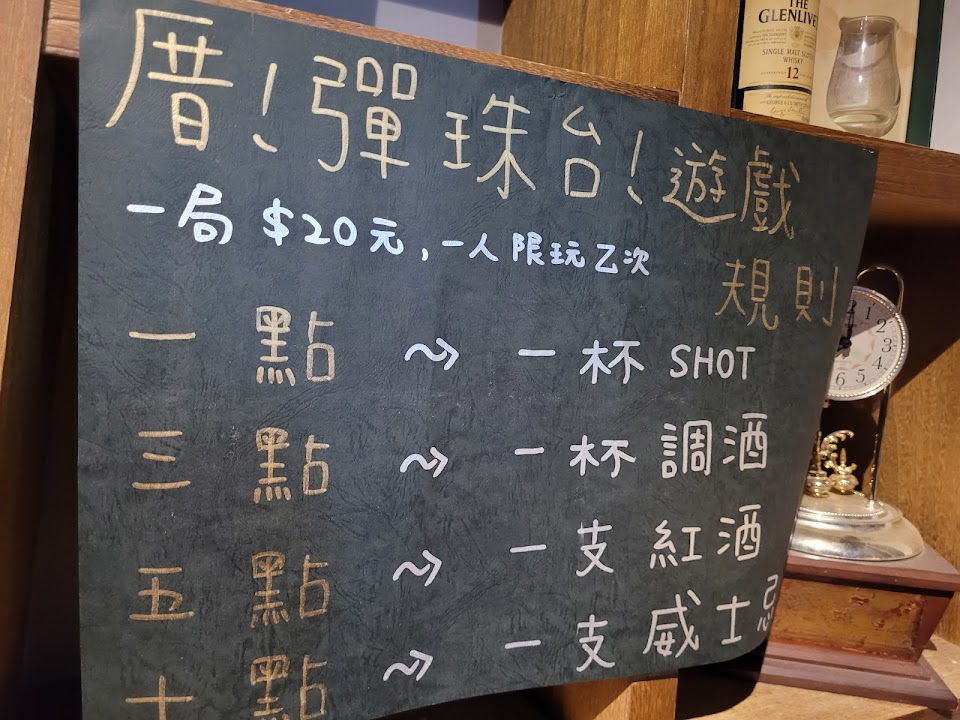 厝!彈珠台!遊戲
規則
一局 $20元,一人限玩乙次
一點 一杯 SHOT
三點 一杯 調酒
五點 一支 紅酒
十點 一支 威士忌
THE
GLENLIVE
SINGLE MALT SCOTCH
WHISKY
12
1
2
3
4
5
6